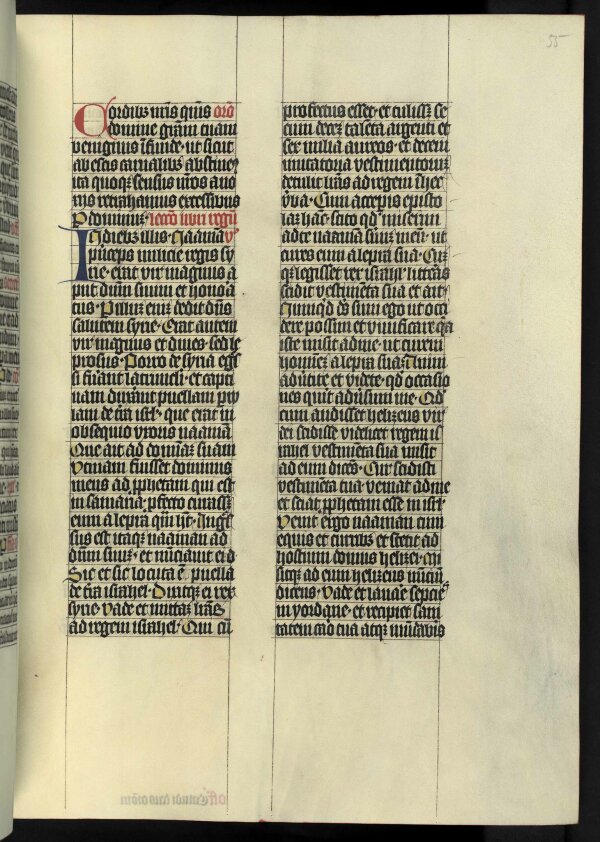 55
Cordibus nr̄is quis̄ orō
domine grām tuam
benignus īfunde · ut sicut
ab escis carnalibꝫ abstine⁊
ita quoqꝫ sensus nr̄os a no
xijs retrahamus excessibus
P dominum · lectō libri regū
In diebus illis · Naamā
princeps milicie regis sy
rie · erat vir magnus a
put dūm suum et honoa
tus · Per illum em̄ dedit dn̄s
salutem syrie · Erat autem
vir magnus et diues · sed le
prosus · Porro de syria eḡs
si fūant latrunculi · et capti
uam duxant puellam par
uam de tr̄a isrl̄ · que erat in
obsequio vxoris naamā
Que ait ad dominā suam
Vtinam fuisset dominus
meus ad ꝓphetam qui est
in samaria · ꝓfecto curass̄
eum a lepra quā hꝫ · Ingr̄s
sus est itaqꝫ naaman ad
dūm suū · et nūciauit ei d̄
Sic et sic locuta ē puella
de tr̄a israhel · Dixitqꝫ ei rex
syrie · Vade et mittaꝫ lrās
ad regem israhel · Qui cū
profectus esset · et tulissꝫ se
cum deceꝫ talēta argenti et
sex milia aureos · et decem
mutatoria vestimentorum
detulit lrās ad regem isrl̄
v̄ba · Cum acceperis episto
lam hāc · scito qd̄ miserim
ad te naamā suū meū · ut
cures eum a lepra sua · Cū
qꝫ legisset rex israhl̄ litteras
scidit vestimēta sua et ait ·
Nunqd̄ ds̄ sum ego ut occi
dere possim et viuificare qa
iste misit ad me · ut curem
homineꝫ a lepra sua · Anim
aduertite et videte · qd̄ occasio
nes querit aduersum me · Qd̄
cum audisset helizeus vir
dei scidisse videlicet regem is
rahel vestimēta sua misit
ad eum dicēs · Cur scidisti
vestimēta tua veniat ad me
et sciat ꝓphetam esse in isrl̄
Venit ergo naaman cum
equis et curribꝫ et stetit ad
hostium domus helizei · Mi
sitqꝫ ad eum helizeus nūciū
dicens · Vade et lauāe septies
in yordane · et recipiet sani
tatem caro tua atqꝫ mūdabis